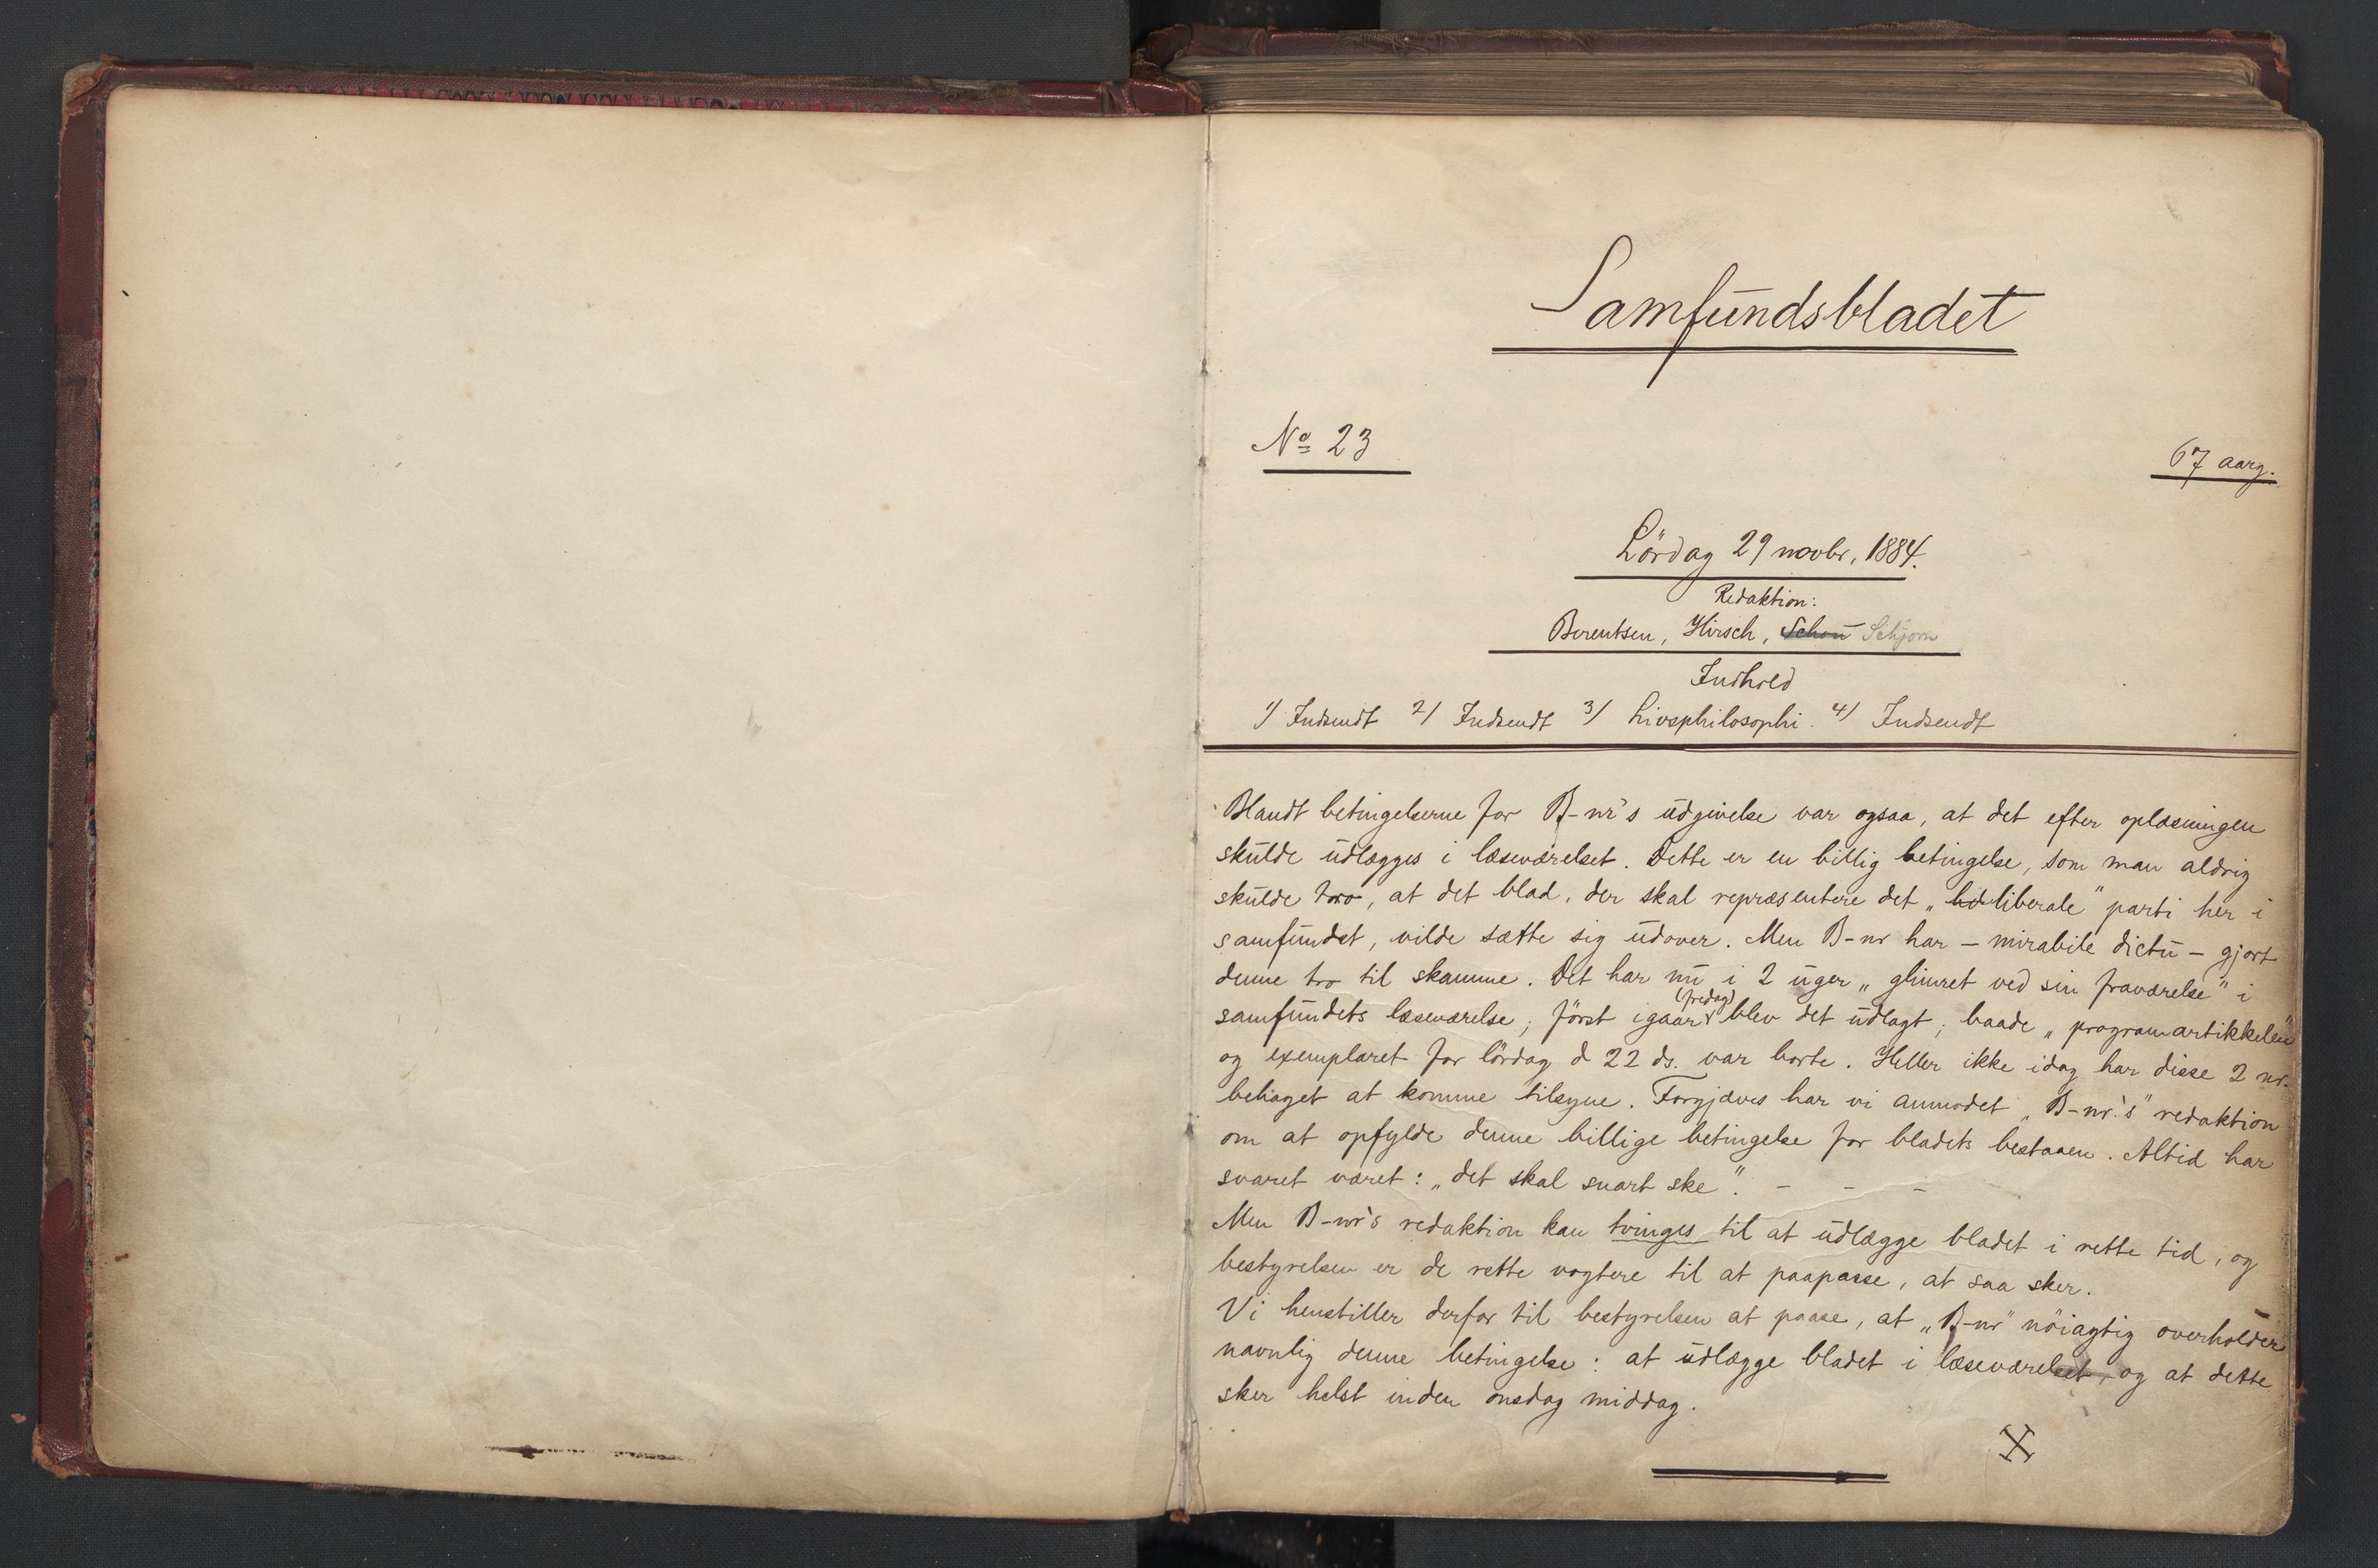 Samfundsbladet
No 23
67 aarg.
Lördag 29 novbr, 1884.
Redaktion:
Berentsen, Hirsch, Schou Schjorn
Indhold
1/ Indsendt 2/ Indsendt 3/ Livsphilosophi. 4/ Indsendt
Blandt betingelserne for B-nr's udgivelse var ogsaa, at det efter oplæsningen
skulde udlægges i læseværelset. Dette er en billig betingelse, som man aldrig
skulde tro, at det blad, der skal repræsentere det „liberale" parti her i
samfundet, vilde sætte sig udover. Men B-nr har – mirabile dictu – gjort
denne tro til skamme. Det har nu i 2 uger „glimret ved sin fraværelse" i
samfundets læseværelse; först igaar (fredag) blev det udlagt; baade „programartikkelen"
og exemplaret for lördag d 22 ds. var borte. Heller ikke idag har disse 2 nr.
behaget at komme tilsyne. Forgjæves har vi anmodet „B-nr.'s" redaktion
om at opfylde denne billige betingelse for bladets bestaaen. Altid har
svaret været: „det skal snart ske". – – –
Men B-nr's redaktion kan tvinges til at udlægge bladet i rette tid, og
bestyrelsen er de rette vogtere til at paapasse, at saa sker.
Vi henstiller derfor til bestyrelsen at paase, at „B-nr" nöiagtig overholder
navnlig denne betingelse: at udlægge bladet i læseværelset, og at dette
sker helst inden onsdag middag.
X